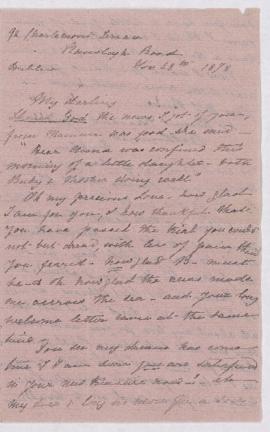 Terrace
Road
Nov 28th 1878
My Darling
Thank God the news I got of you
from Mamma was good she said
"Dear Anna was confined this
morning of a little daughter - both
Baby & Mother doing well"
Oh my precious Love - how glad
I am for you, & how thankful that
you have passed the trial you could
not but dread, with less of pain than
you feared - how glad be must
be & oh how glad the news made
me across the sea - and your long
welcome letter came at the same
time
You see my dreams has come
true & I am sure you are satisfied
in your new treasure now -
my love I long for more